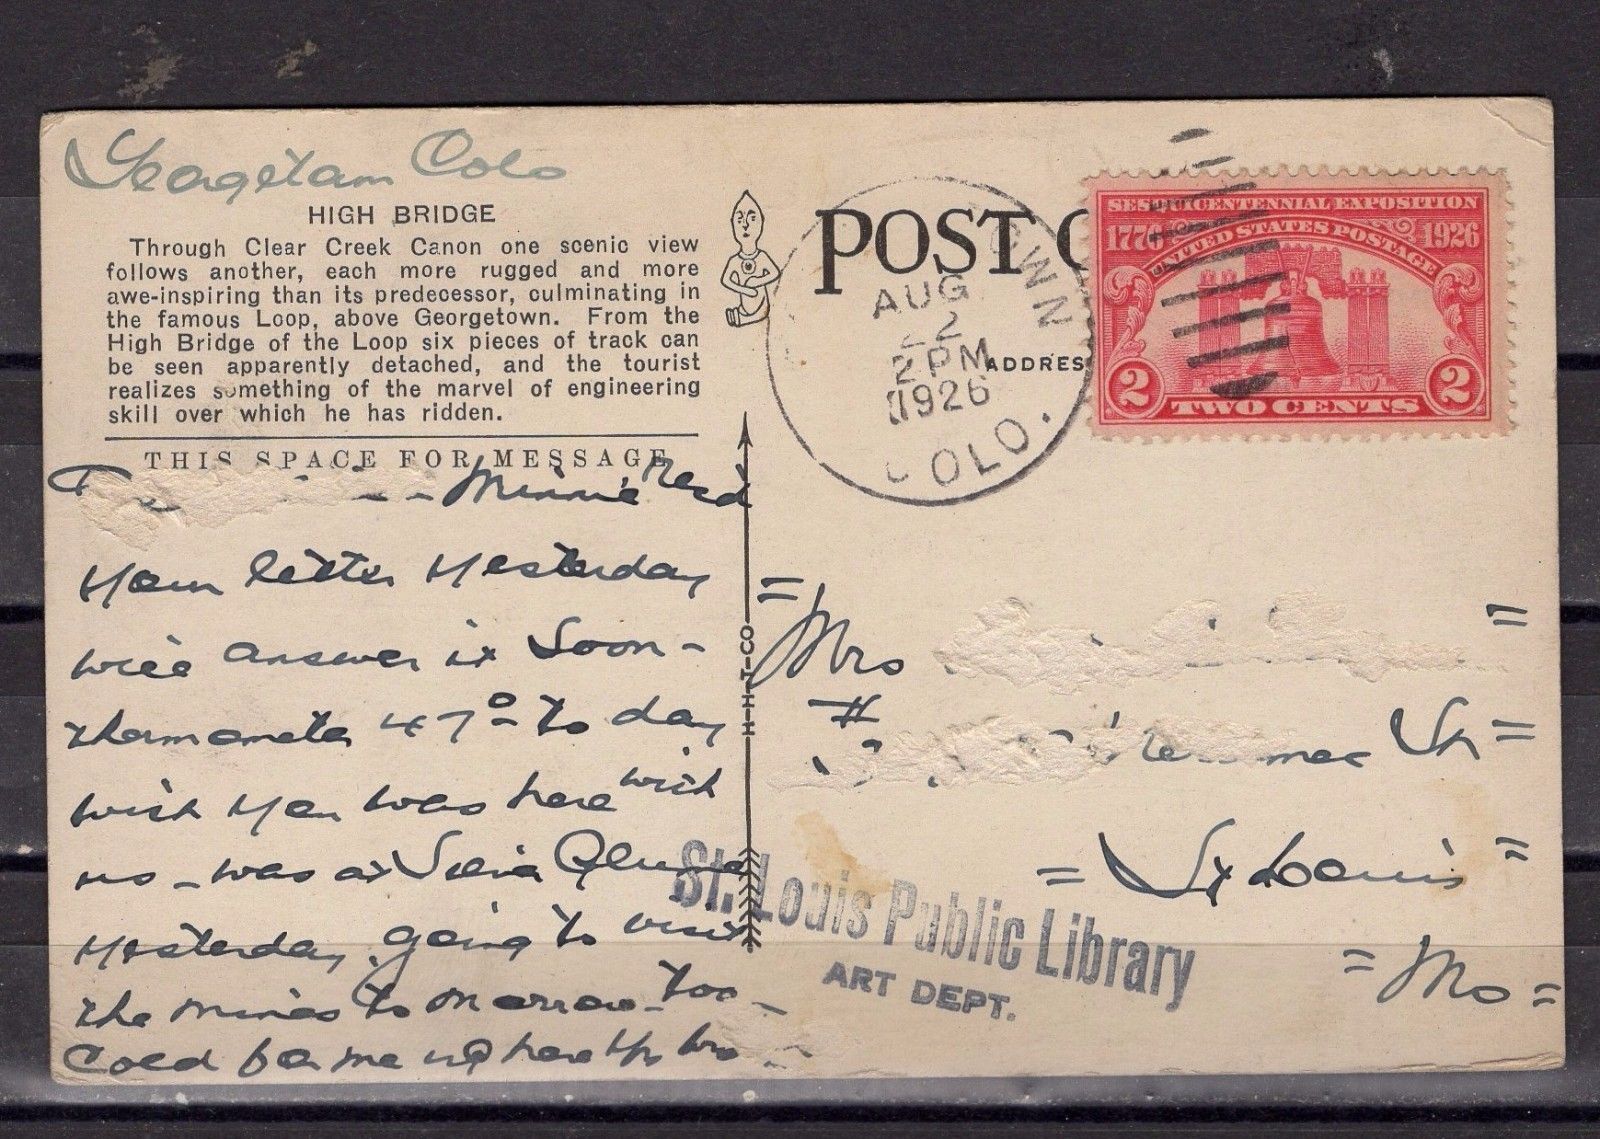 Georgetown Colo
HIGH BRIDGE
Through Clear Creek Canon one scenic view
follows another, each more rugged and more
awe-inspiring than its predecessor, culminating in
the famous Loop, above Georgetown. From the
High Bridge of the Loop six pieces of track can
be seen apparently detached, and the tourist
realizes something of the marvel of engineering
skill over which he has ridden.
THIS SPACE FOR MESSAGE
Minnie Recd
your letter yesterday
will answer it Soon -
thermometer 47° - to day
wish you was here with
us - was at Silver Plume
yesterday. going to visit
the mines to morrow - too -
Cold for me up here
H-H-T-CO
POST C
ADDRES
OWN
AUG
22
2 PM
1926
COLO.
SESQUICENTENNIAL EXPOSITION
1776 UNITED STATES POSTAGE 1926
2 TWO CENTS 2
= Mrs =
St =
= St Louis =
= Mo =
St. Louis Public Library
ART DEPT.